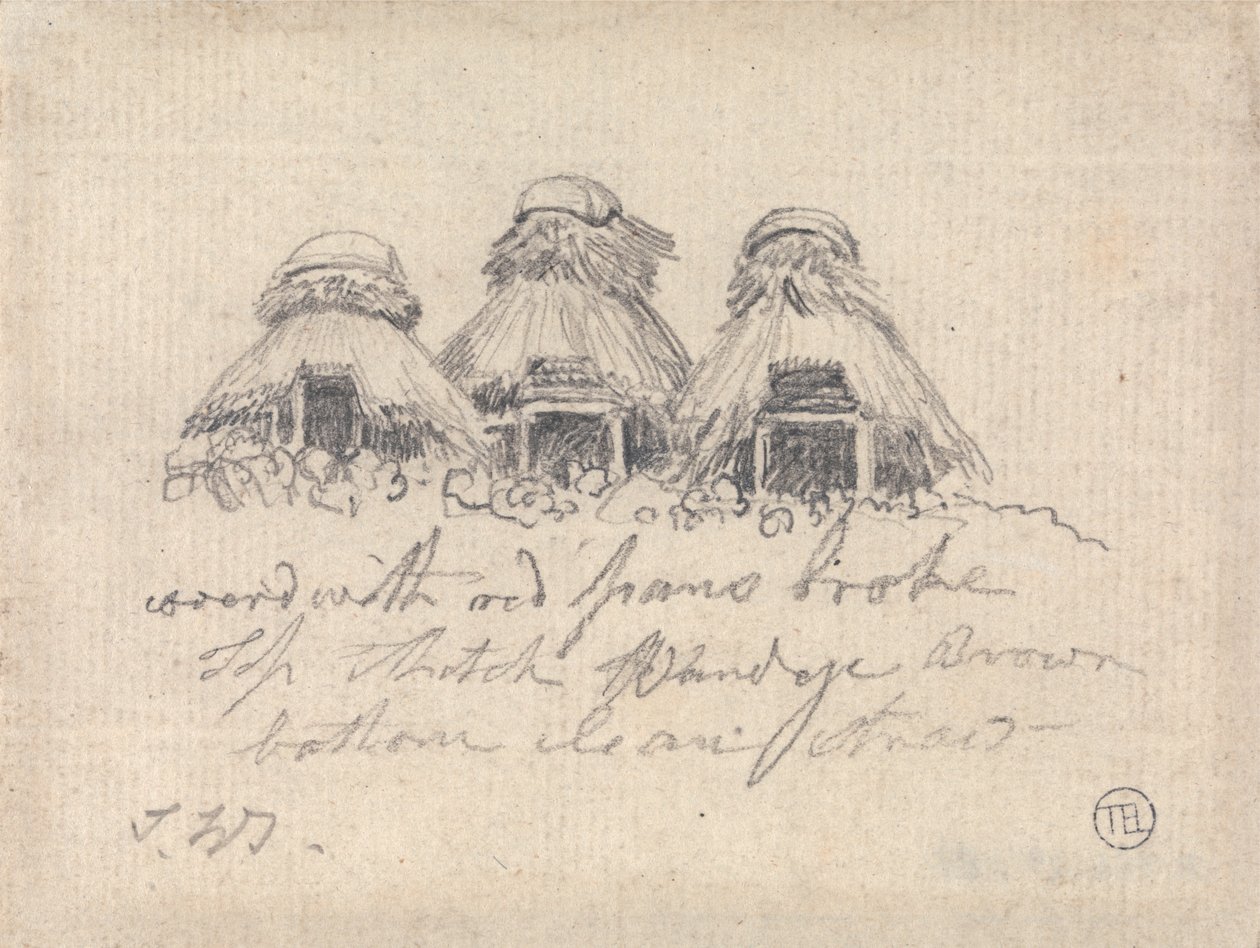 coverd with red pans broke
Top thatch Vandyke Brown
bottom clean Straw
J. W.
TEL